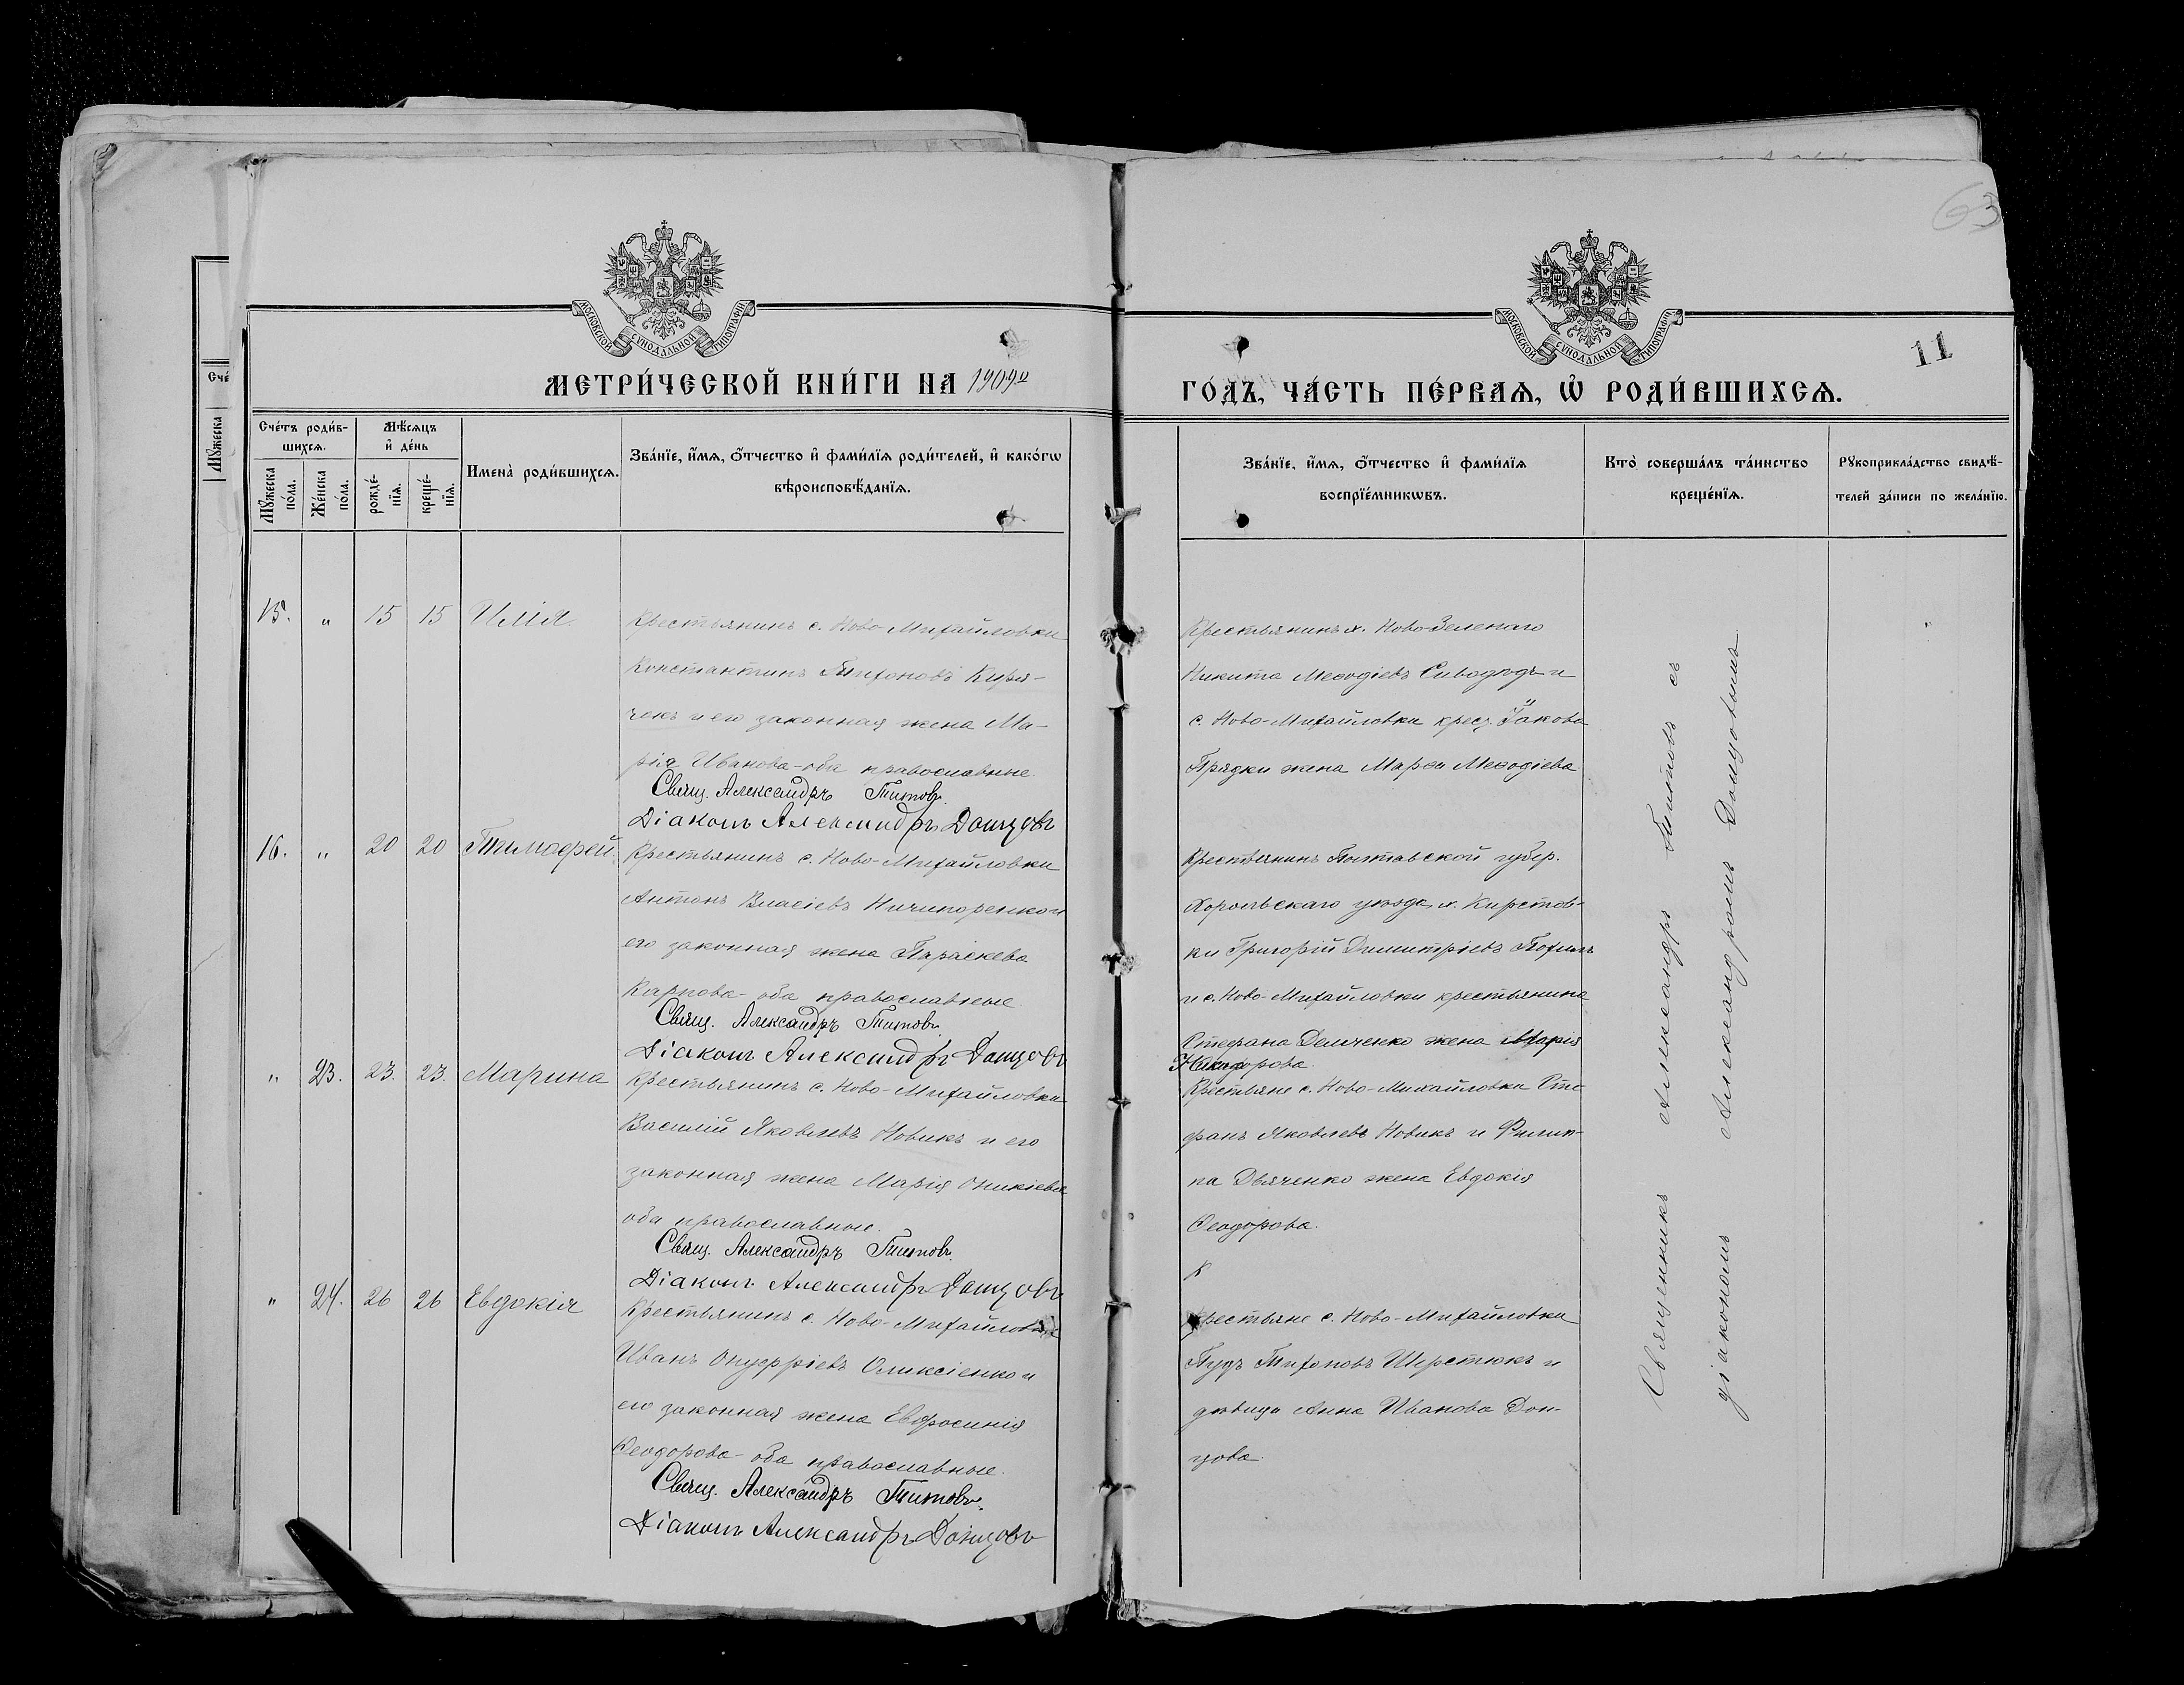 63
МОСКОВСКОЙ СУНОДАЛЬНОЙ ТИПОГРАФІИ.
МОСКОВСКОЙ СУНОДАЛЬНОЙ ТИПОГРАФІИ.
11
МЕТРИ́ЧЕСКОЙ КНИ́ГИ НА 1909й
ГО́ДЪ, ЧА́СТЬ ПЕ́РВАѦ, Ѡ҆ РОДИ́ВШИХСѦ.
Сче́
Мꙋжеска
Сче́тъ роди́в-
шихсѧ.
Мꙋжеска по́ла.
Же́нска по́ла.
Мѣ́сѧцъ
и҆ де́нь
рожде́-
нїѧ.
креще́-
нїѧ.
Имена̀ роди́вшихсѧ.
Зва́нїе, и҆́мѧ, ѻ҆́тчество и҆ фами́лїѧ роди́телей, и҆ како́гѡ
вѣроисповѣ́данїѧ.
Зва́нїе, и҆́мѧ, ѻ҆́тчество и҆ фами́лїѧ
воспрїе́мникѡвъ.
Кто̀ соверша́лъ та́инство
креще́нїѧ.
Рꙋкоприкла́дство свидѣ́-
телей за́писи по жела́нїю.
15. " 15 15 Илія
Крестьянинъ с. Ново-Михайловки
Константинъ Тихоновъ Киря-
чекъ и его законная жена Ма-
рія Иванова - оба православные.
Свящ. Александръ Титовъ.
Діаконъ Александръ Донцовъ
Крестьянинъ х. Ново-Зеленаго
Никита Меѳодіевъ Сиводѣдъ и
с. Ново-Михайловки крес. Іакова
Прядки жена Марѳа Меѳодіева
16. " 20 20 Тимоѳей.
Крестьянинъ с. Ново-Михайловки
Антонъ Власіевъ Ничипоренко и
его законная жена Параскева
Карпова - оба православные
Свящ. Александръ Титовъ.
Діаконъ Александръ Донцовъ
Крестьянинъ Полтавской губер.
Хорольскаго уѣзда, х.
ки Григорій Димитріевъ
и с. Ново-Михайловки крестьянина
Стефана Демченко жена Марія
Никифорова.
" 23. 23. 23. Марина
Крестьянинъ с. Ново-Михайловки
Василій Яковлевъ Новикъ и его
законная жена Марія Оникіева
оба православные.
Свящ. Александръ Титовъ.
Діаконъ Александръ Донцовъ
Крестьяне с. Ново-Михайловки Сте-
фанъ Яковлевъ Новикъ и Филип-
па Дьяченко жена Евдокія
Ѳеодорова.
К
" 24. 26 26 Евдокія
Крестьянинъ с. Ново-Михайловки
Иванъ Онуфріевъ Олексіенко и
его законная жена Евфросинія
Ѳеодорова - оба православные.
Свящ. Александръ Титовъ.
Діаконъ Александръ Донцовъ
Крестьяне с. Ново-Михайловки
Пудъ Тихоновъ Шерстюкъ и
дѣвица Анна Иванова Дон-
цова.
Священникъ Александръ Титовъ съ
діакономъ Александромъ Донцовымъ